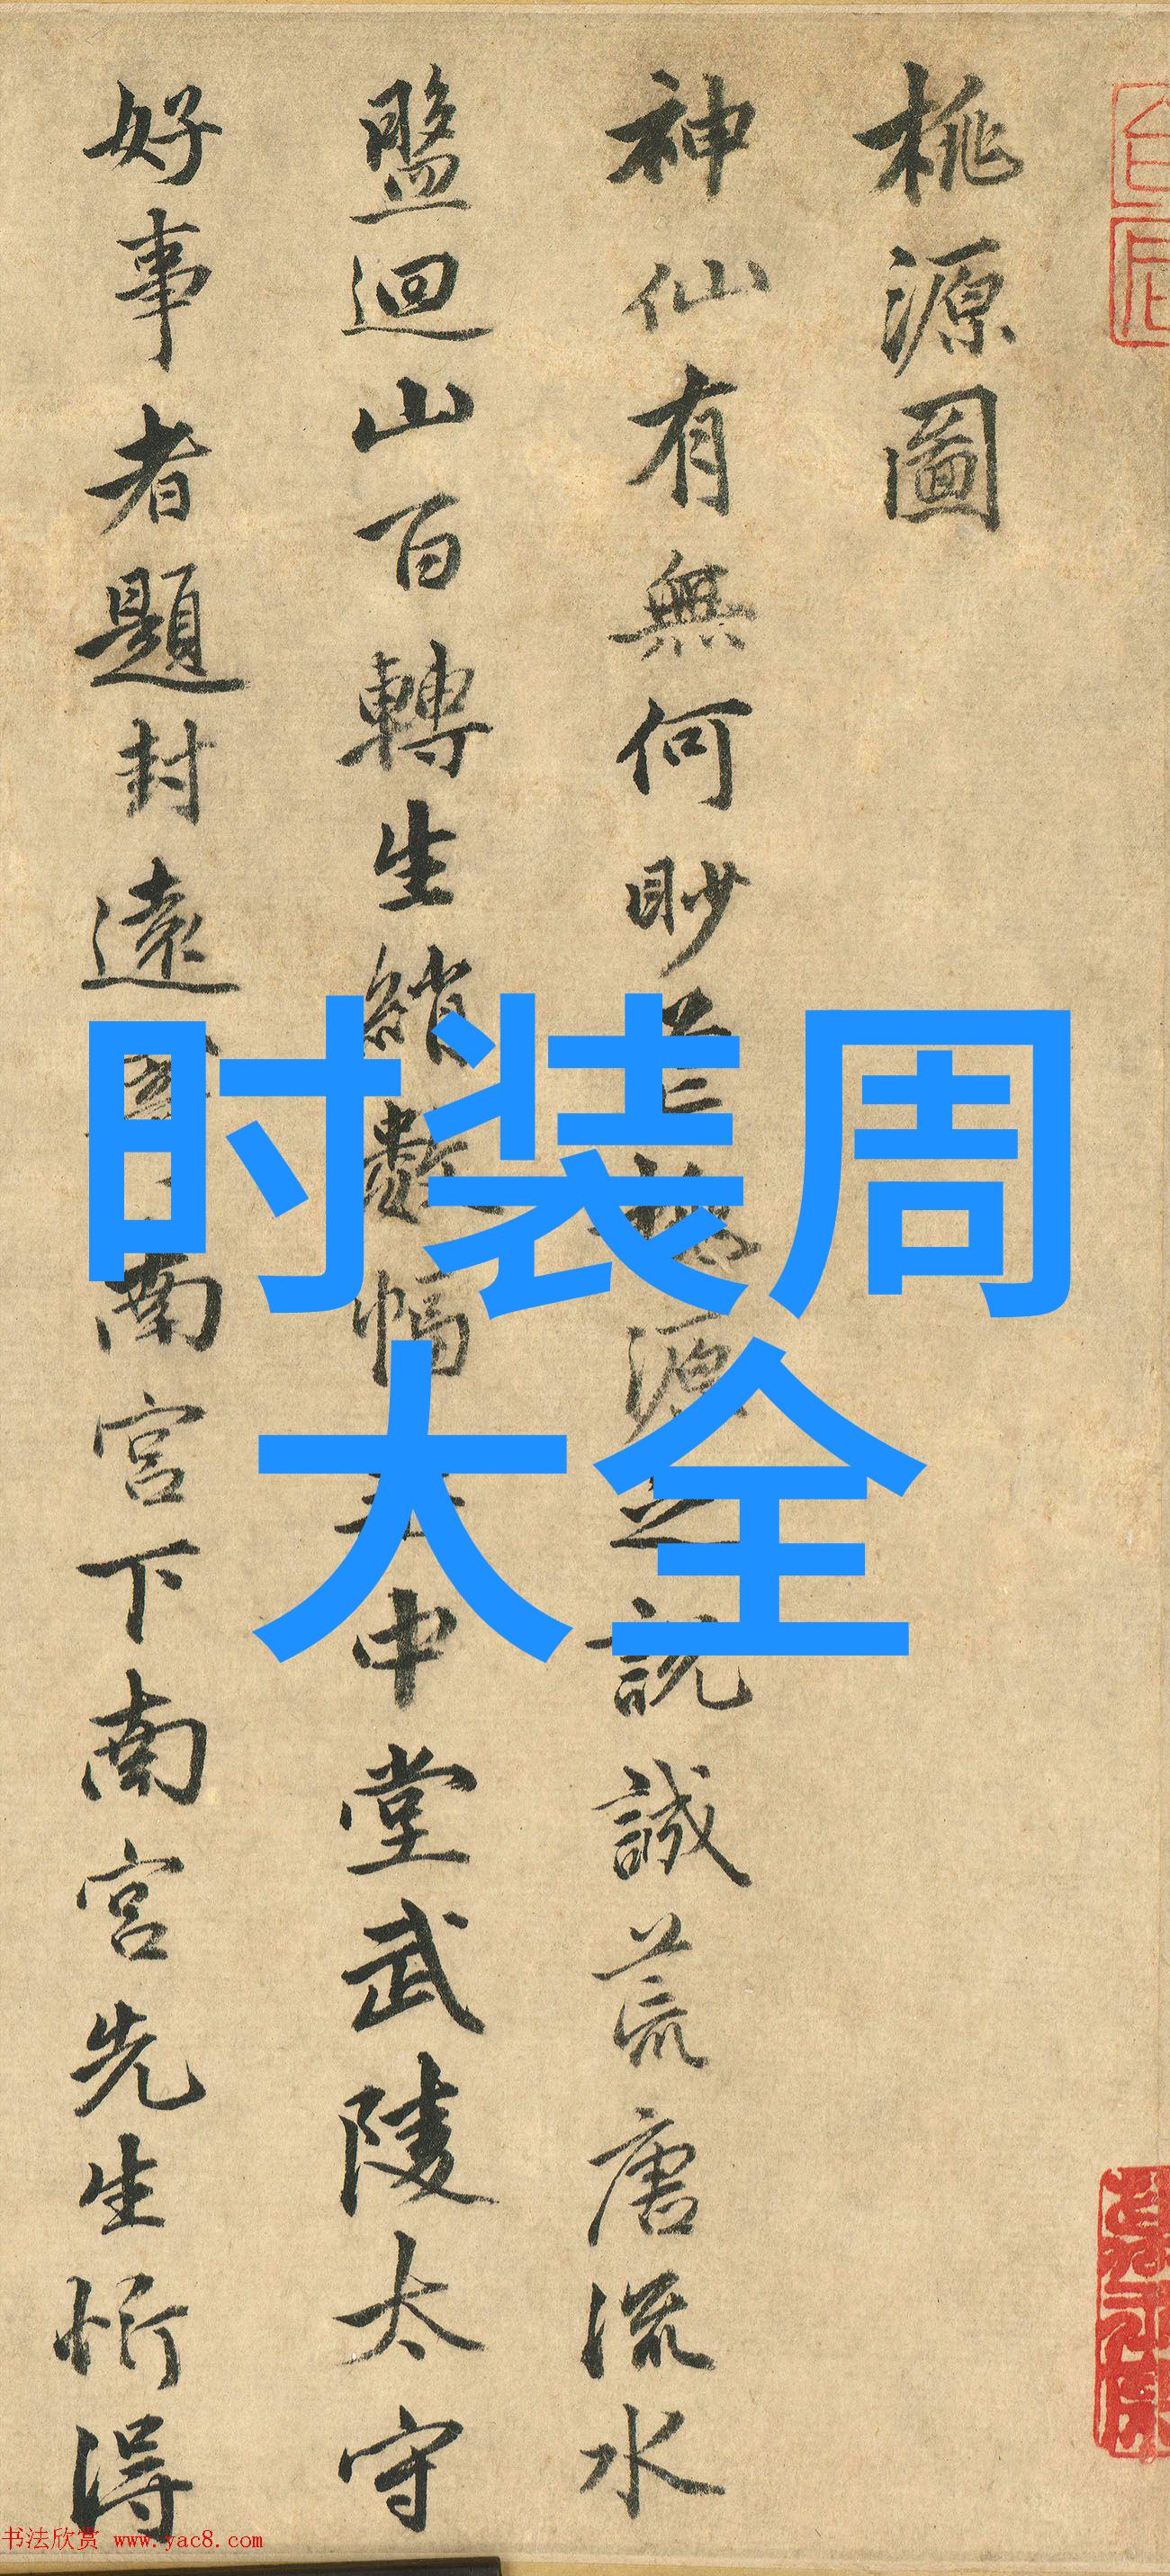 桃源圖
神仙有無何眇源之說誠荒唐流水
盤迴山百轉生綃數幅中堂武陵太守
好事者題封遠南宮下南宮先生忻得
时装周
大全
书法欣赏 www.yac8.com